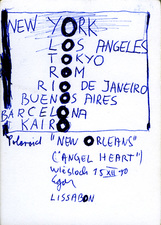 NEW YORK
LOS ANGELES
TOKYO
ROM
RIO DE JANEIRO
BUENOS AIRES
BARCELONA
KAIRO
Polaroid "NEW ORLEANS"
("ANGEL HEART")
Wiesloch 15 XII 90
LISSABON